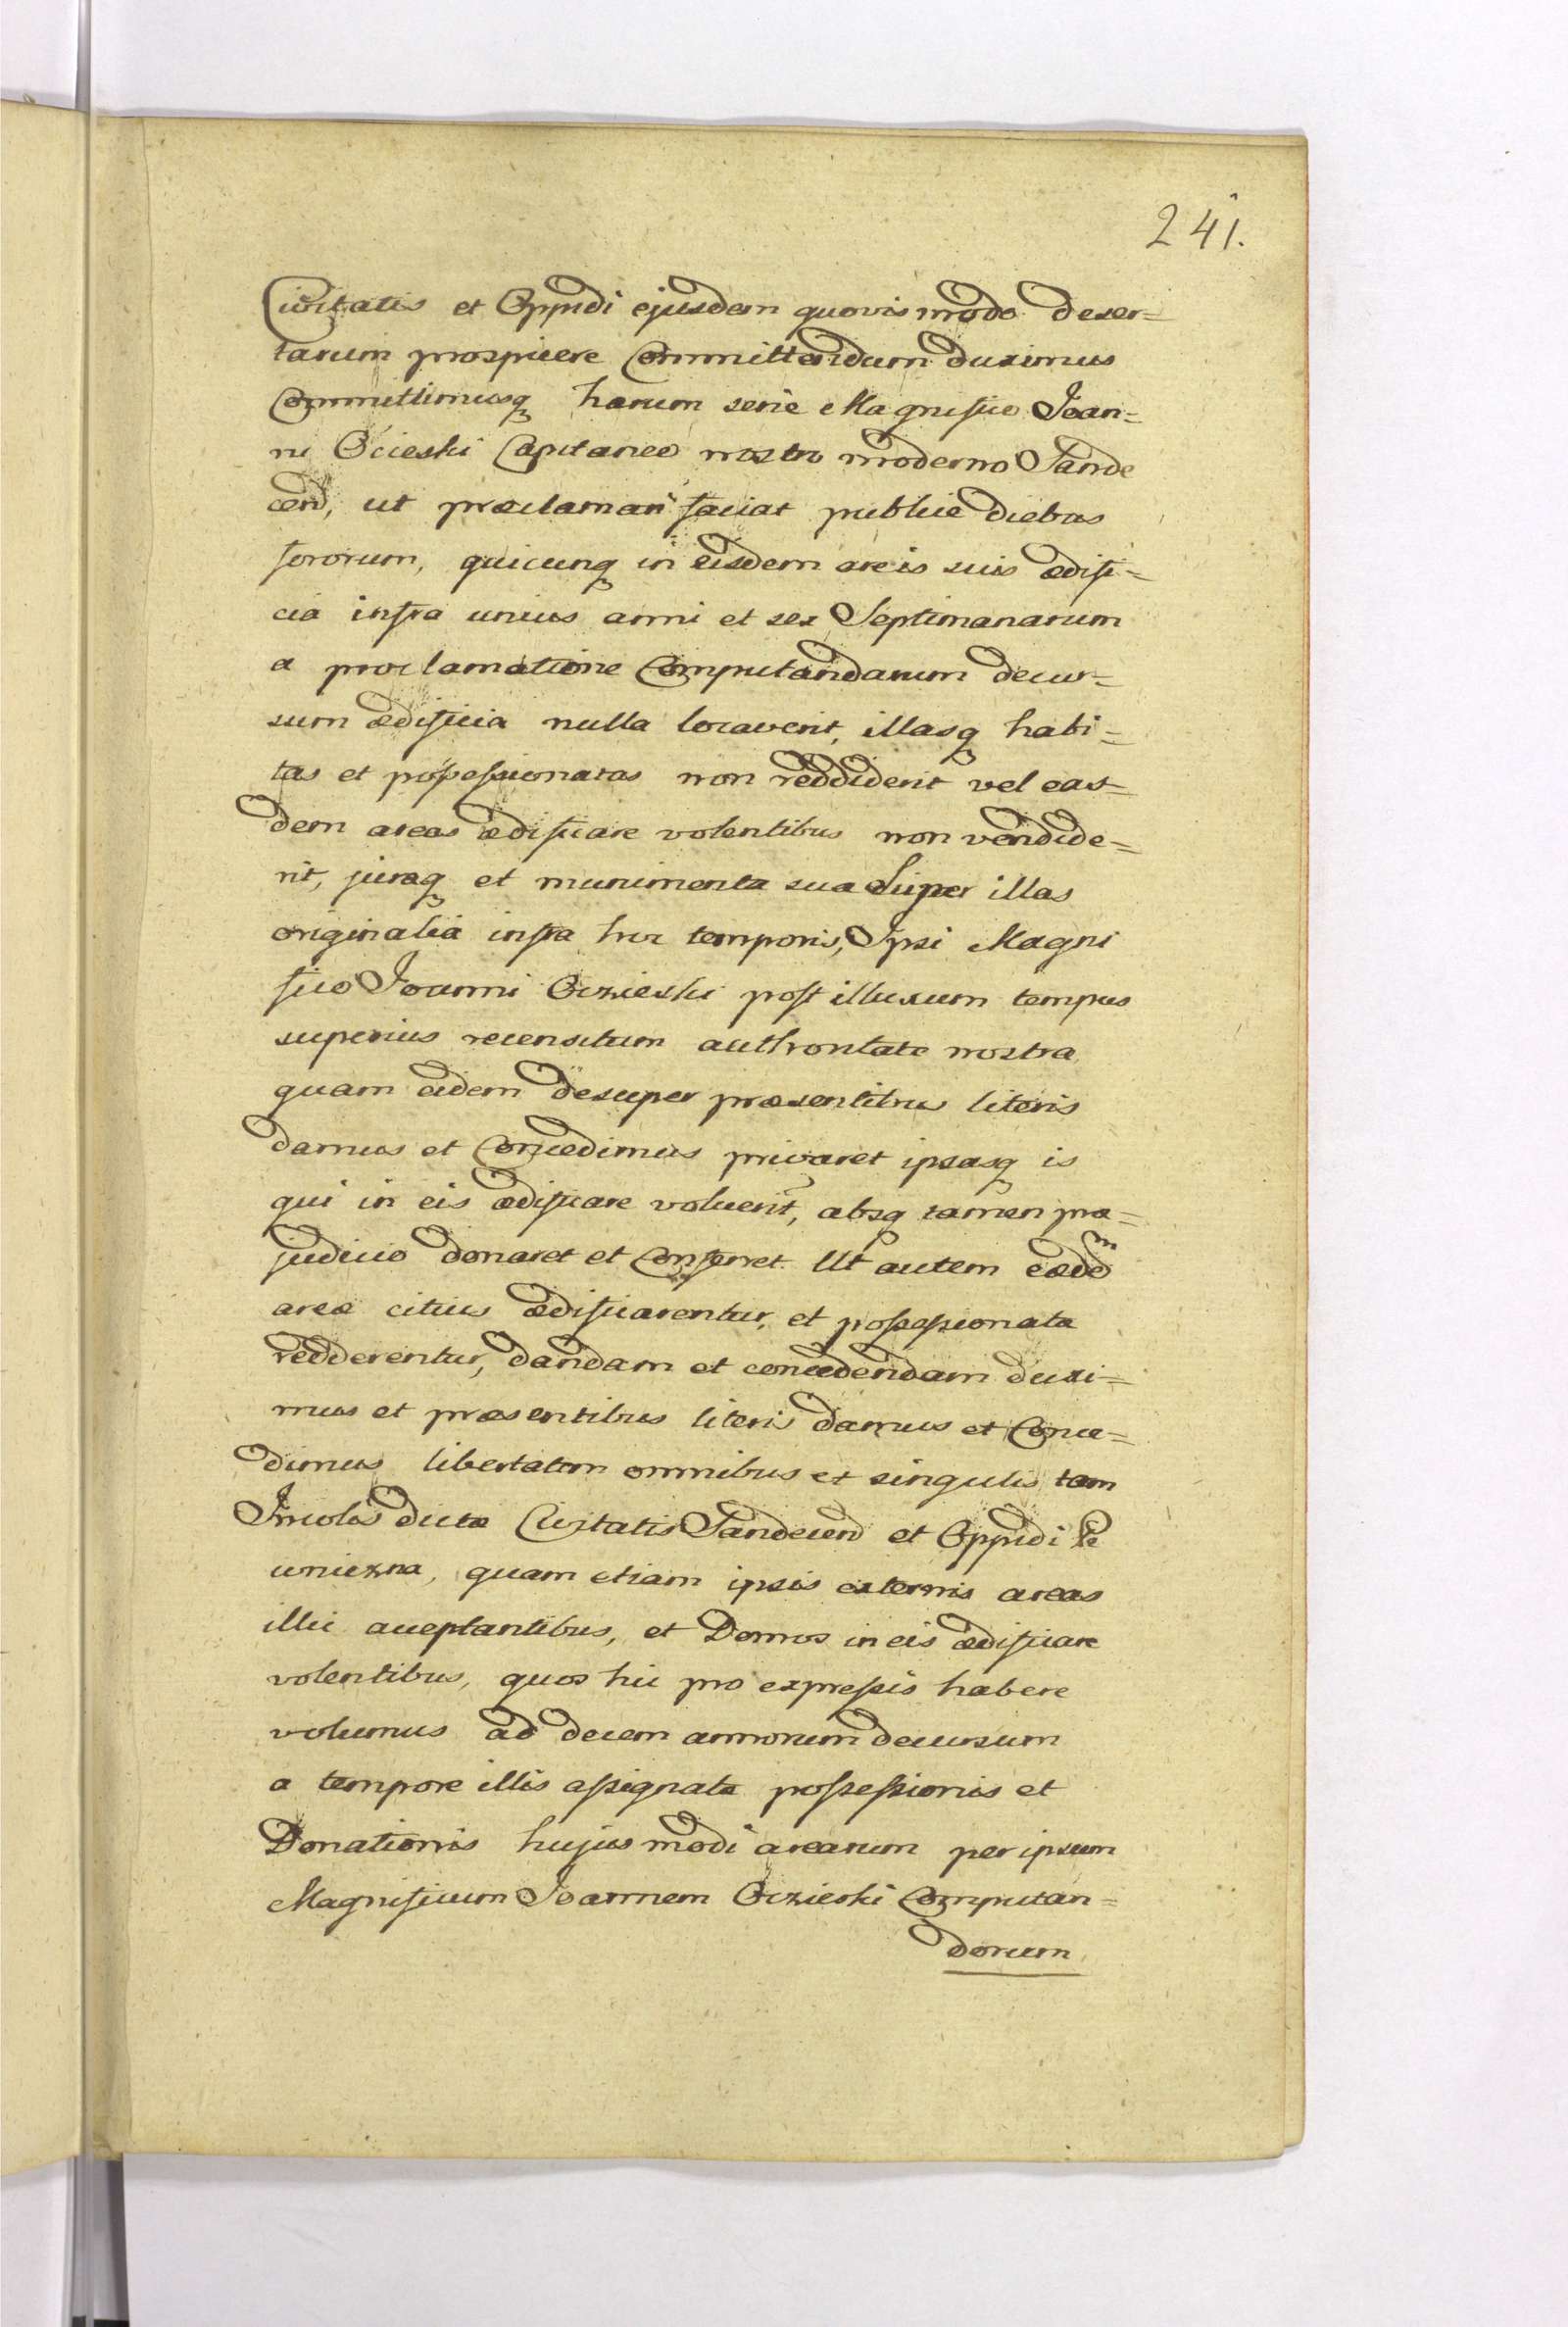 241.
Civitatis et Oppidi ejusdem quovis modo deser=
tarum prospicere Committendum duximus
Committimusq harum serie Magnifico Joan=
ni Ocieski Capitaneo nostro moderno Sande
cen, ut proclamari faciat publice diebus
fororum, quicunq in eisdem areis suis ædifi=
cia infra unius anni et sex Septimanarum
a proclamatione Computandarum decur=
sum ædificia nulla locaverit, illasq habi=
tas et possessionatas non reddiderit vel eas=
dem areas ædificare volentibus non vendide=
rit, juraq et munimenta sua Super illas
originalia infra hoc temporis, Ipsi Magni
fico Joanni Oczieski post illuxum tempus
superius recensitum authoritate nostra
quam eidem desuper præsentibus literis
damus et Concedimus privaret ipsasq is
qui in eis ædificare voluerit, absq tamen præ=
judicio donaret et Conferret. Ut autem eædem
areæ citius ædificarentur, et possessionata
redderentur, dandam et concedendam duxi=
mus et præsentibus literis damus et Conce=
dimus libertatem omnibus et singulis tam
Incolis dictæ Civitatis Sandecen et Oppidi Pi
wniczna, quam etiam ipsis externis areas
illic acceptantibus, et Domos in eis ædificare
volentibus, quos hic pro expressis habere
volumus ad decem annorum decursum
a tempore illis assignata possessionis et
Donationis hujus modi arearum per ipsum
Magnificum Joannem Oczieski Computan=
dorum